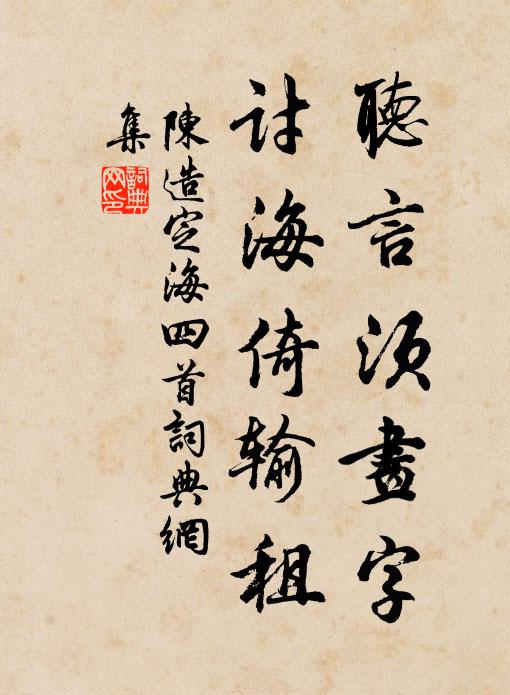 聽言須畫字
計海倚輸租
陳造定海四首詞典網
集
詞典
网印